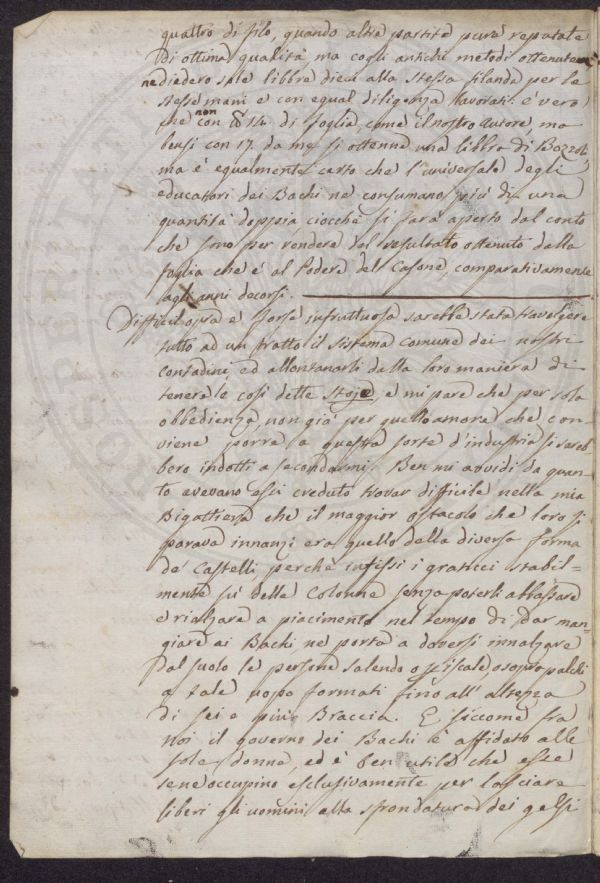 quattro di filo, quando altre partite pure reputate
di ottima qualità, ma cogli antichi metodi ottenute
ne diedero sole libbre dieci alla stessa filanda per le
stesse mani e con egual diligenza lavorati: è vero
che non con 14. di foglia, come il nostro Autore, ma
bensì con 17. da me si ottenne una libbra di Bozzoli
ma è egualmente certo che l'universale degli
educatori dei Bachi ne consumano più di una
quantità doppia, ciocchè si farà aperto dal conto
che sono per rendere del resultato ottenuto dalla
foglia che è al Podere del Casone, comparativamente
agli anni decorsi.
Difficil opra e forse infruttuosa sarebbe stata travolgere
tutto ad un tratto il sistema comune dei nostri
contadini, ed allontanarli dalla loro maniera di
tenere le così dette Stoje, e mi pare che per sola
obbedienza, non già per quello amore che con-
viene porre a questa sorte d'industria si sareb-
bero indotti a secondarmi. Ben mi avvidi da quan-
to avevano essi creduto trovar difficile nella mia
Bigattiera che il maggior ostacolo che loro si
parava innanzi era quello della diversa forma
de' Castelli perchè infissi i graticci stabil-
mente su delle Colonne senza poterli abbassare
e rialzare a piacimento nel tempo di dar man-
giare ai Bachi ne porta a doversi innalzare
dal suolo le persone salendo o scale, o sopra palchi
a tale uopo formati fino all'altezza
di sei e più Braccia. E siccome fra
noi il governo dei Bachi è affidato alle
sole donne, ed è ben utile che esse
se ne occupino esclusivamente per lasciare
liberi gli uomini alla sfrondatura dei gelsi